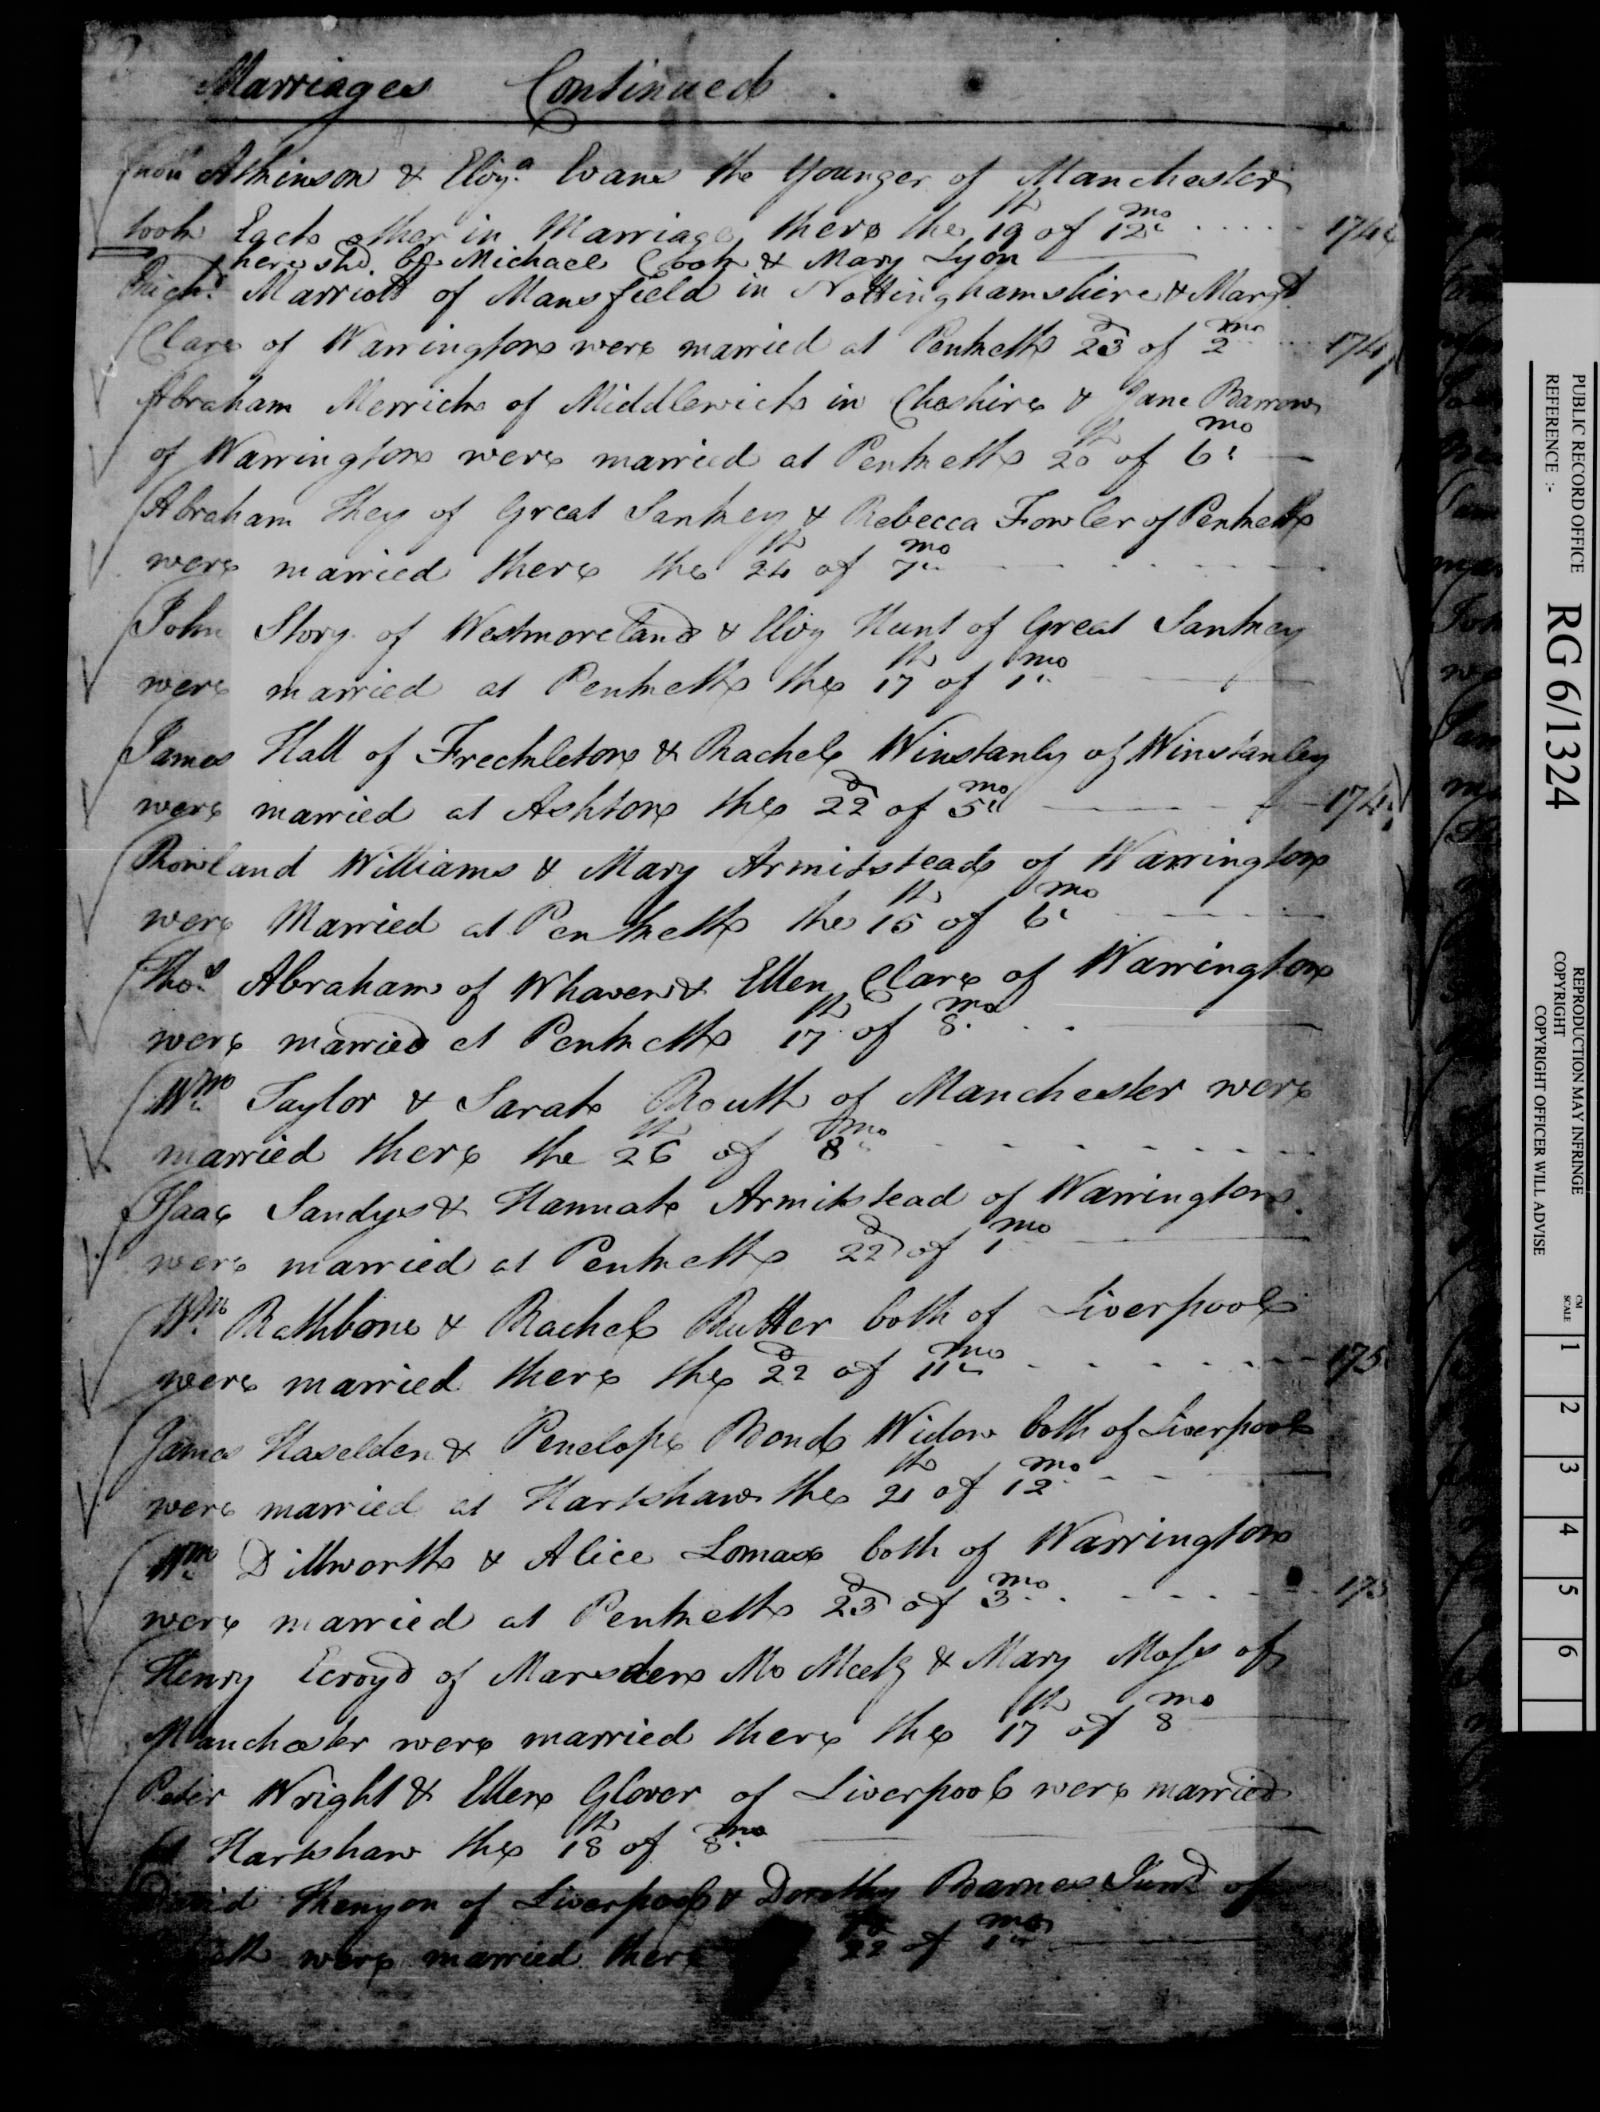 Marriages Continued
Atkinson & Eliz.a Evans the Younger of Manchester
took Each other in Marriage there the 19th of 12mo
here shd. be Michael Cook & Mary Lyon
Richd. Marriott of Mansfield in Nottinghamshire & Margt
Clare of Warrington were married at Penketh 23d of 2mo
Abraham Merrick of Middlewich in Cheshire & Jane Barrow
of Warrington were married at Penketh 20th of 6mo
Abraham Key of Great Sankey & Rebecca Fowler of Penketh
were married there the 24th of 7mo
John Story of Westmoreland & Eliz Hunt of Great Sankey
were married at Penketh the 17th of 1mo
James Hall of Freckleton & Rachel Winstanly of Winstanley
were married at Ashton the 22d of 5mo
Rowland Williams & Mary Armitstead of Warrington
were Married at Penketh the 15th of 6mo
Thos. Abraham of Whaven & Ellen Clare of Warrington
were married at Penketh 17th of 8mo
Wm. Taylor & Sarah Routh of Manchester were
married there the 26th of 8mo
Isaac Sandys & Hannah Armitstead of Warrington
were married at Penketh 22d of 1mo
Wm. Rathbone & Rachel Rutter both of Liverpool
were married there the 22d of 11mo
James Haselden & Penelope Bond Widow both of Liverpool
were married at Hartshaw the 21th of 12mo
Wm. Dillworth & Alice Lomax both of Warrington
were married at Penketh 23d of 3mo
Henry Ecroyd of Marsden Mo Meetg & Mary Moss of
Manchester were married there the 17th of 8mo
Peter Wright & Ellen Glover of Liverpool were married
at Hartshaw the 18th of 8mo
David Kenyon of Liverpool & Dorothy Barnes Junr of
were married there 22 of 1mo
PUBLIC RECORD OFFICE
REFERENCE :-
RG 6/1324
REPRODUCTION MAY INFRINGE
COPYRIGHT
COPYRIGHT OFFICER WILL ADVISE
CM
SCALE
1 2 3 4 5 6